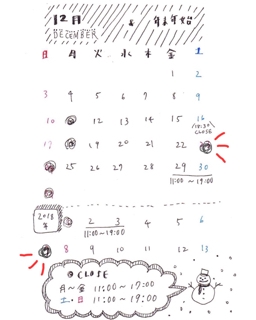 12月 & 年末年始
DECEMBER
日 月 火 水 木 金 土
1 2
3 4 5 6 7 8 9
10 12 13 14 15 16
CLOSE
17 19 20 21 22
25 26 27 28 29 30
11:00〜19:00
2018年
2 3 4 5 6
11:00〜19:00
8 9 10 11 12 13
CLOSE
月〜金
土・日 11:00〜19:00